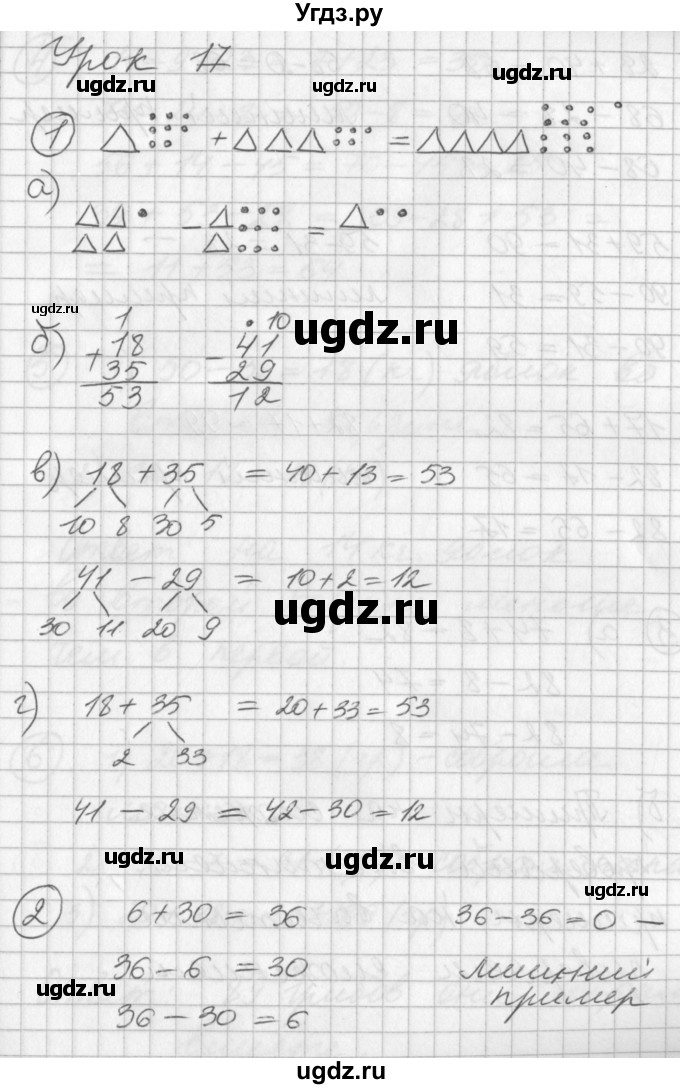 Угдз.ру
Урок 17
1 + =
а) - =
б) 1 • 10
+ 18 - 41
35 29
53 12
в) 18 + 35 = 40 + 13 = 53
10 8 30 5
41 - 29 = 10 + 2 = 12
30 11 20 9
г) 18 + 35 = 20 + 33 = 53
2 33
41 - 29 = 42 - 30 = 12
2 6 + 30 = 36 36 - 36 = 0 —
36 - 6 = 30 лишний
36 - 30 = 6 пример
ugdz.ru
ugdz.ru
ugdz.ru
ugdz.ru
ugdz.ru
ugdz.ru
ugdz.ru
ugdz.ru
ugdz.ru
ugdz.ru
ugdz.ru
ugdz.ru